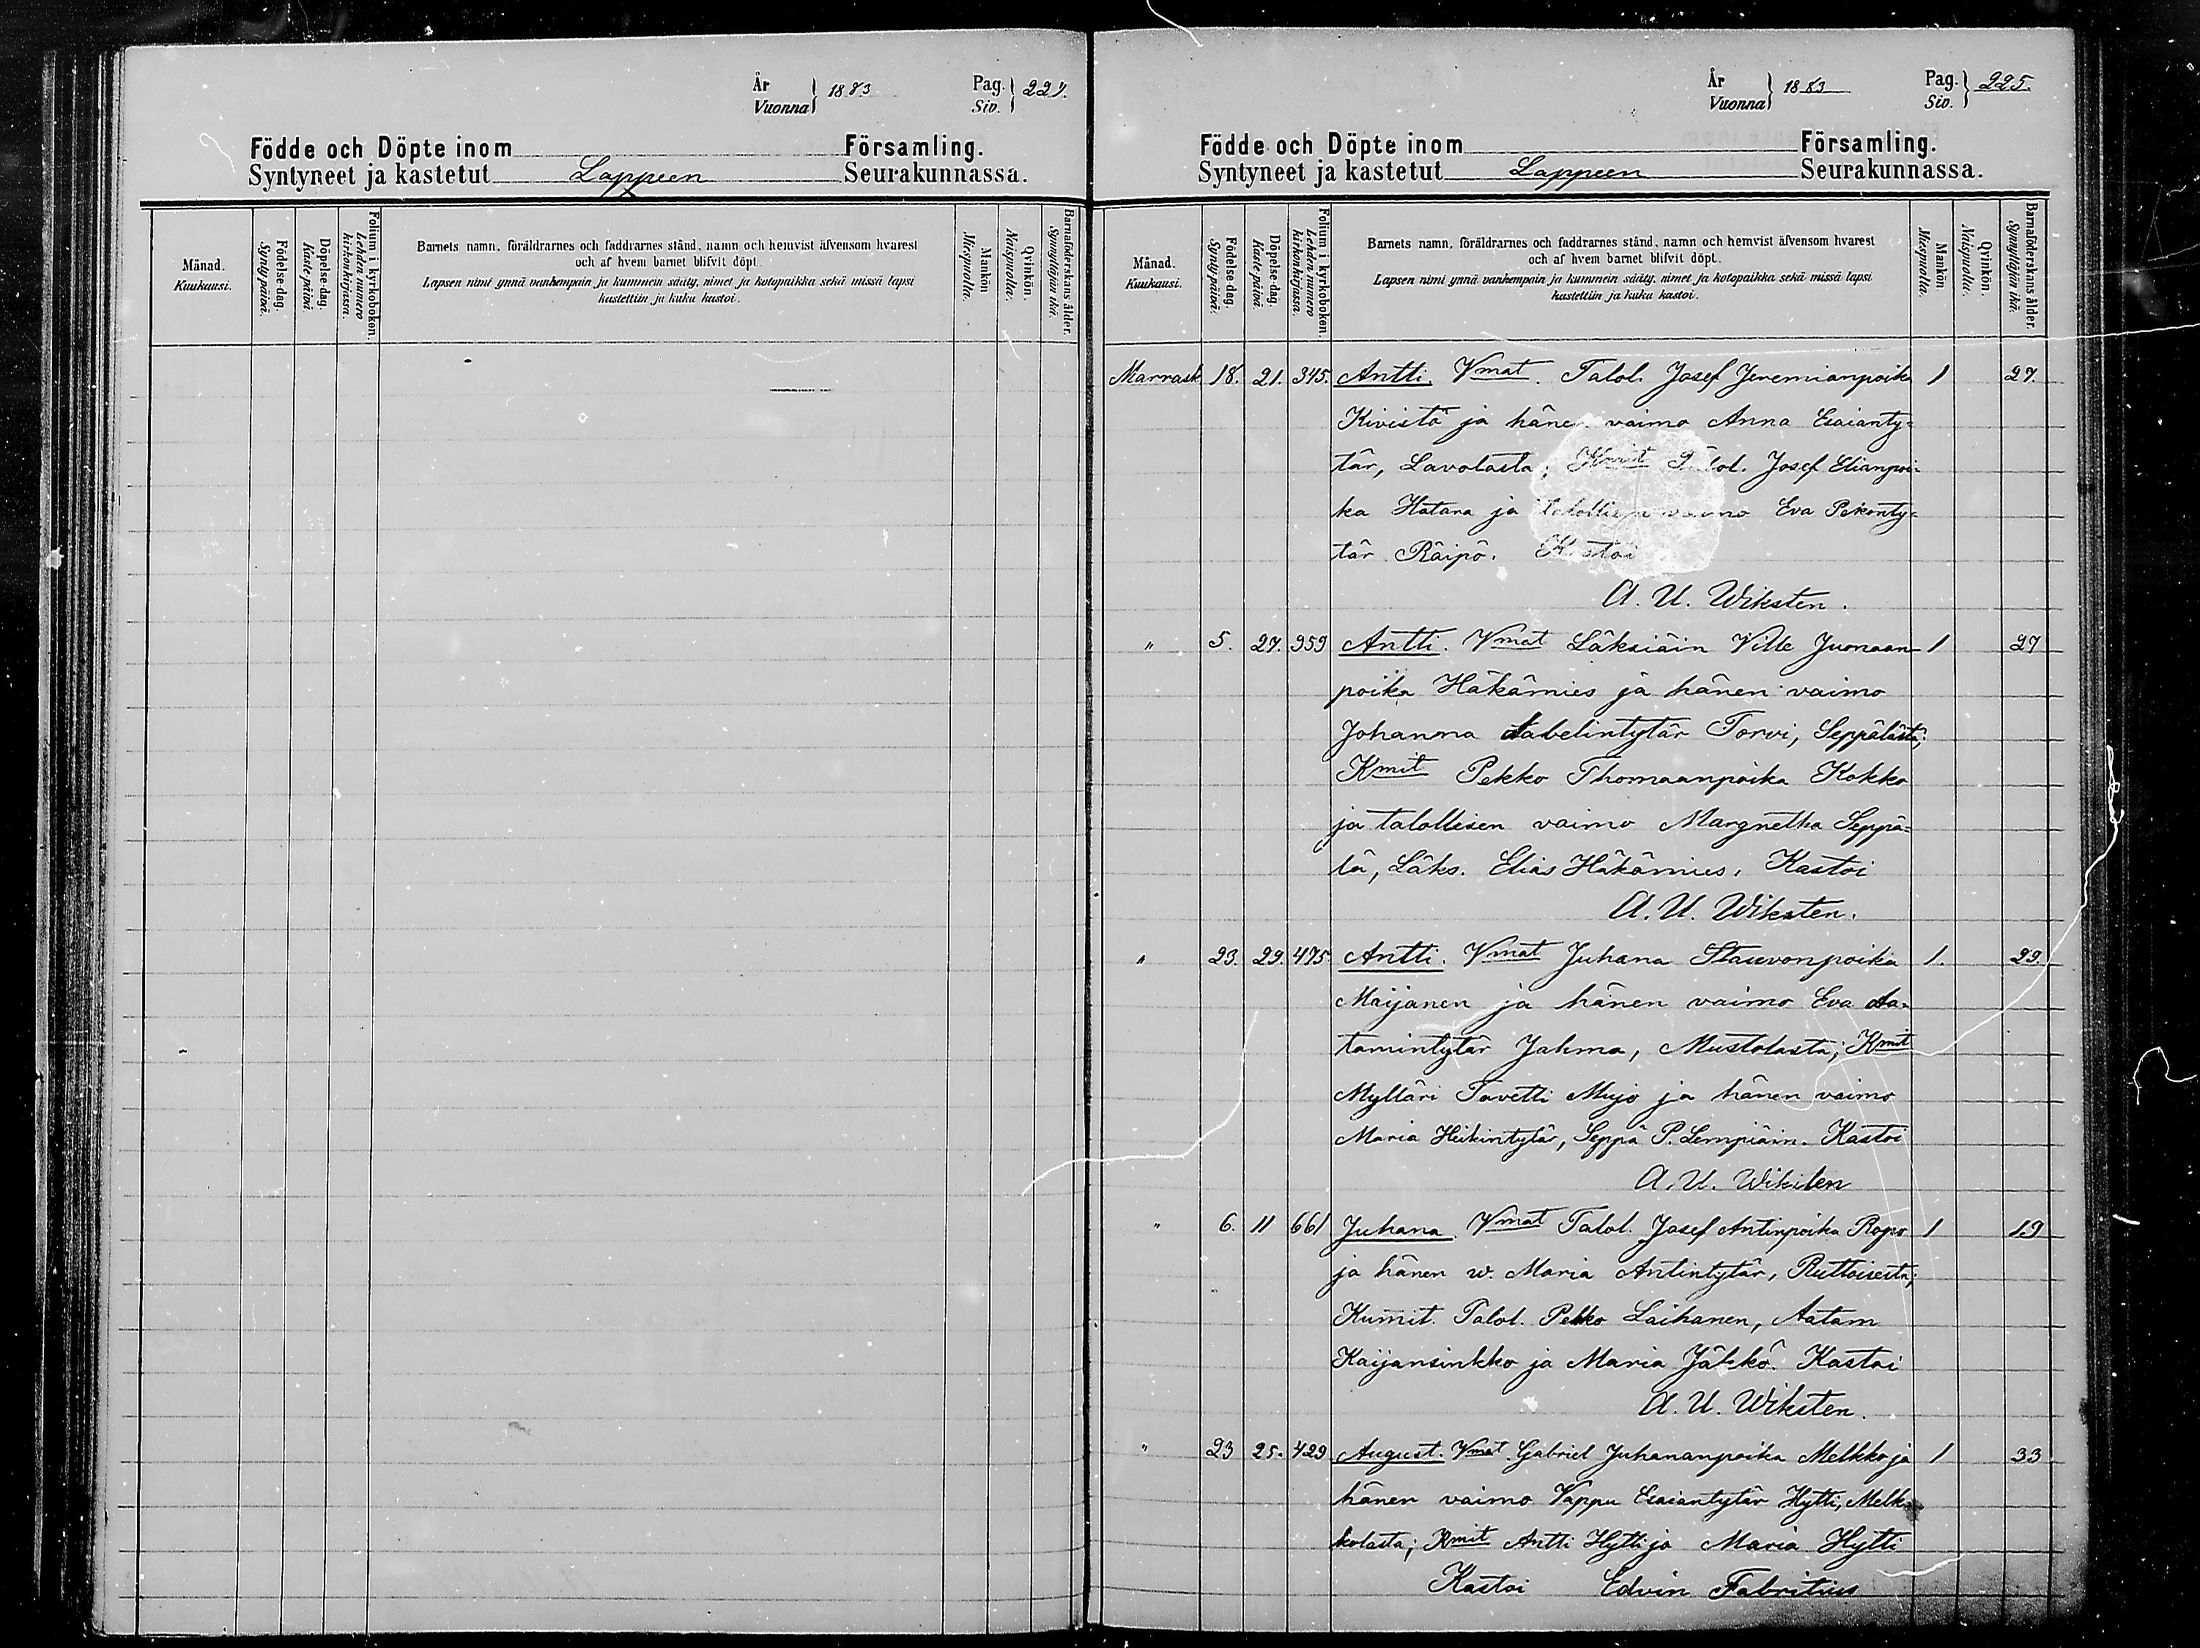 År
Vuonna } 1883
Pag.
Siv. } 227.
Födde och Döpte inom Församling.
Syntyneet ja kastetut Lappeen Seurakunnassa.
Månad. Kuukausi.
Födelse-dag. Syntypäivä.
Döpelse-dag. Kastepäivä.
Folium i kyrkoboken. Lehden numero kirkonkirjassa.
Barnets namn, föräldrarnes och faddrarnes stånd, namn och hemvist äfvensom hvarest
och af hvem barnet blifvit döpt.
Lapsen nimi ynnä vanhempain ja kummein sääty, nimet ja kotopaikka sekä missä lapsi
kastettiin ja kuka kastoi.
Mankön. Miespuolta.
Qvinkön. Naispuolta.
Barnaföderskans ålder. Synnyttäjän ikä.
År
Vuonna } 1883
Pag.
Siv. } 225.
Födde och Döpte inom Församling.
Syntyneet ja kastetut Lappeen Seurakunnassa.
Månad. Kuukausi.
Födelse-dag. Syntypäivä.
Döpelse-dag. Kastepäivä.
Folium i kyrkoboken. Lehden numero kirkonkirjassa.
Barnets namn, föräldrarnes och faddrarnes stånd, namn och hemvist äfvensom hvarest
och af hvem barnet blifvit döpt.
Lapsen nimi ynnä vanhempain ja kummein sääty, nimet ja kotopaikka sekä missä lapsi
kastettiin ja kuka kastoi.
Mankön. Miespuolta.
Qvinkön. Naispuolta.
Barnaföderskans ålder. Synnyttäjän ikä.
Marrask 18. 21. 345. Antti. Vmat. Talol. Josef Jeremianpoika 1 27.
Kivistö ja hänen vaimo Anna Esaianty-
tär, Lavolasta; Kmit Talol. Josef Elianpoi-
ka Hatara ja talollisen vaimo Eva Pekonty-
tär Räipö. Kastoi
A. U. Wiksten.
" 5. 27. 359 Antti. Vmat Läksiäin Ville Juonaan- 1 27
poika Häkämies ja hänen vaimo
Johanna Aabelintytär Torvi, Seppälästä;
Kmit Pekko Thomaanpoika Kokko
ja talollisen vaimo Margnetha Seppä-
lä, Läks. Elias Häkämies. Kastoi
A. U. Wiksten.
" 23. 29. 475 Antti. Vmat Juhana Stauvonpoika 1. 29.
Maijanen ja hänen vaimo Eva Aa-
tamintytär Jahma, Mustolasta; Kmit
Mylläri Tavetti Mujo ja hänen vaimo
Maria Heikintytär, Seppä P. Lempiäin. Kastoi
A. U. Wiksten
" 6. 11 661 Juhana. Vmat Talol. Josef Antinpoika Ropo 1 19
ja hänen w. Maria Antintytär, Ruttoisesta;
Kumit. Talol. Pekko Laihanen, Aatam
Kaijansinkko ja Maria Jäkkö. Kastoi
A. U. Wiksten.
" 23 25. 429 August. Vmat. Gabriel Juhananpoika Melkko ja 1 33
hänen vaimo Vappu Esaiantytär Hytti, Melk-
kolasta; Kmit Antti Hytti ja Maria Hytti
Kastoi Edvin Fabritius